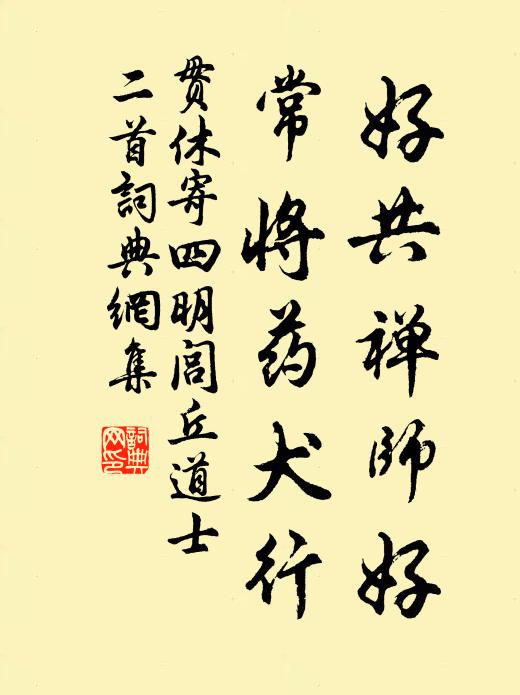 好共禅師好
常将药犬行
贯休寄四明闾丘道士
二首詞典網集
詞典
网印